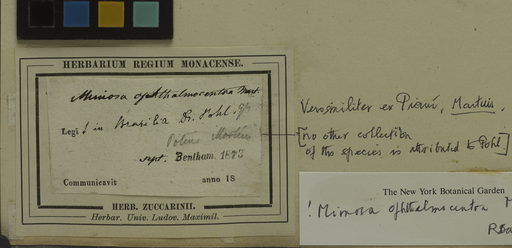 HERBARIUM REGIUM MONACENSE.
Mimosa ophthalmocentra Mart.
Legi! in Brasilia Dr. Pohl.
Potius Martius
sept. Bentham. 1873
Communicavit anno 18
HERB. ZUCCARINII.
Herbar. Univ. Ludov. Maximil.
Verosimiliter ex Piauí, Martius.
[no other collection
of this species is attributed to Pohl]
The New York Botanical Garden
! Mimosa ophthalmocentra M